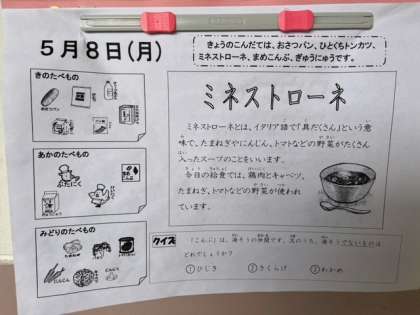 5月8日(月)
きょうのこんだては、おさつパン、ひとくちトンカツ、
ミネストローネ、まめこんぶ、ぎゅうにゅうです。
きのたべもの
おさつパン
あかのたべもの
ぶたにく
みどりのたべもの
にんじん
ミネストローネ
ミネストローネとは、イタリア語で「具だくさん」という意
味で、たまねぎやにんじん、トマトなどの野菜がたくさん
入ったスープのことをいいます。
今日の給食では、鶏肉とキャベツ、
たまねぎ、トマトなどの野菜が使われ
ています。
クイズ
「こんぶ」は、海そうの仲間です。次のうち、海そうでないものは
どれでしょうか?
①ひじき ②きくらげ ③わかめ